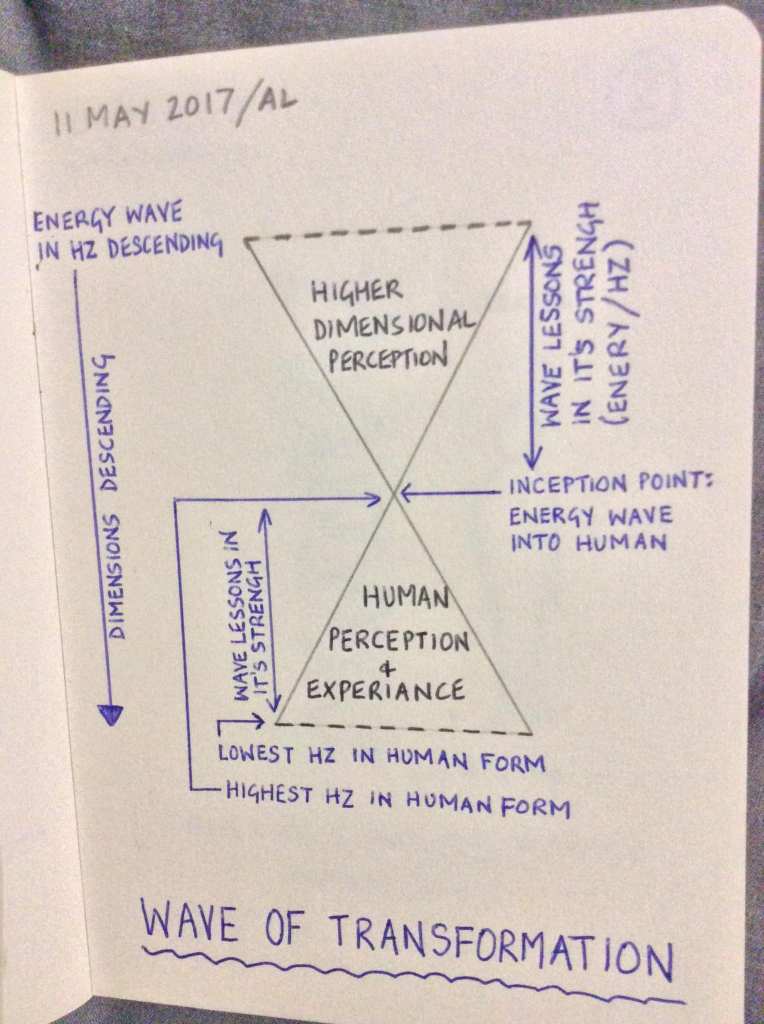 11 MAY 2017/AL
ENERGY WAVE
IN HZ DESCENDING
DIMENSIONS DESCENDING
HIGHER
DIMENSIONAL
PERCEPTION
WAVE LESSONS
IN IT'S STRENGH
(ENERY/HZ)
INCEPTION POINT:
ENERGY WAVE
INTO HUMAN
WAVE LESSONS IN
IT'S STRENGH
HUMAN
PERCEPTION
+
EXPERIANCE
LOWEST HZ IN HUMAN FORM
HIGHEST HZ IN HUMAN FORM
WAVE OF TRANSFORMATION